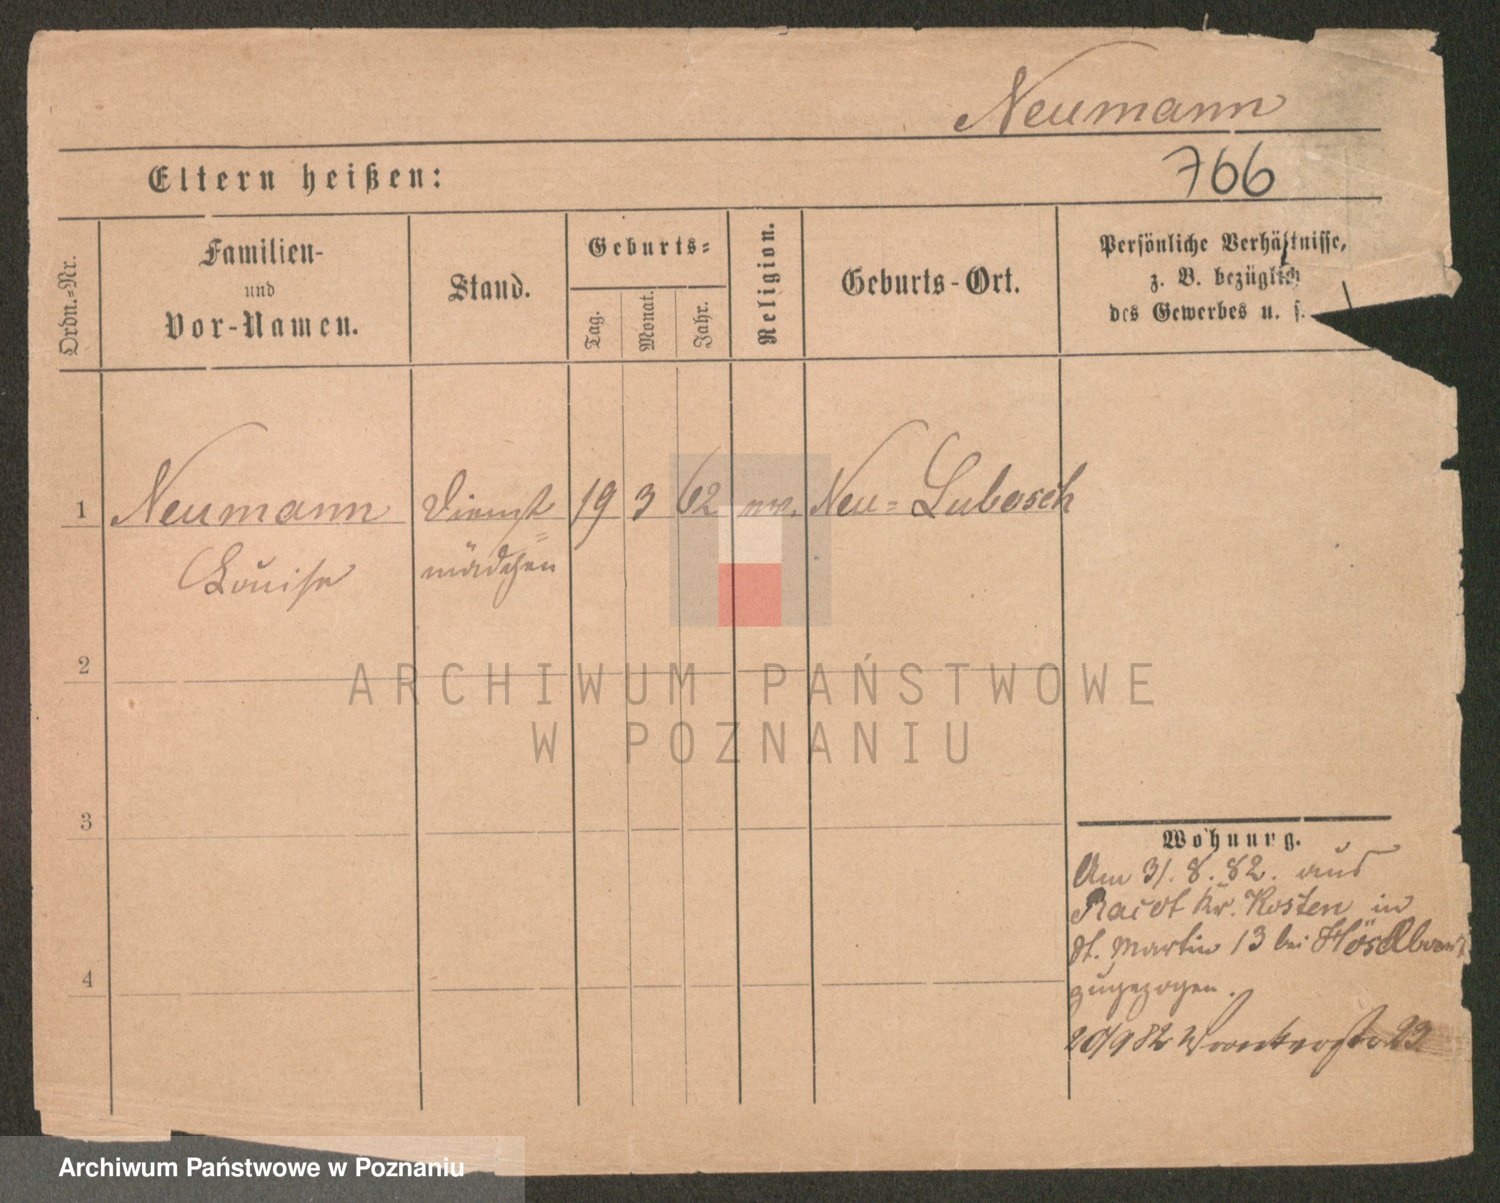 Neumann
Eltern heißen:
766
Ordn.-Nr.
Familien-
und
Vor-Namen.
Stand.
Geburts-
Tag.
Monat.
Jahr.
Religion.
Geburts-Ort.
Persönliche Verhältnisse,
z. B. bezüglich
des Gewerbes u. s.
1 Neumann Dienst= 19 3 62 ev. Neu=Lubosch
Louise mädchen
2
3
4
Wohnung.
Am 31.8.82. aus
Racot Kr. Kosten in
St. Martin 13 bei
zugezogen.
20/9 82 Wronkerstr 23
ARCHIWUM PAŃSTWOWE
W POZNANIU
Archiwum Państwowe w Poznaniu